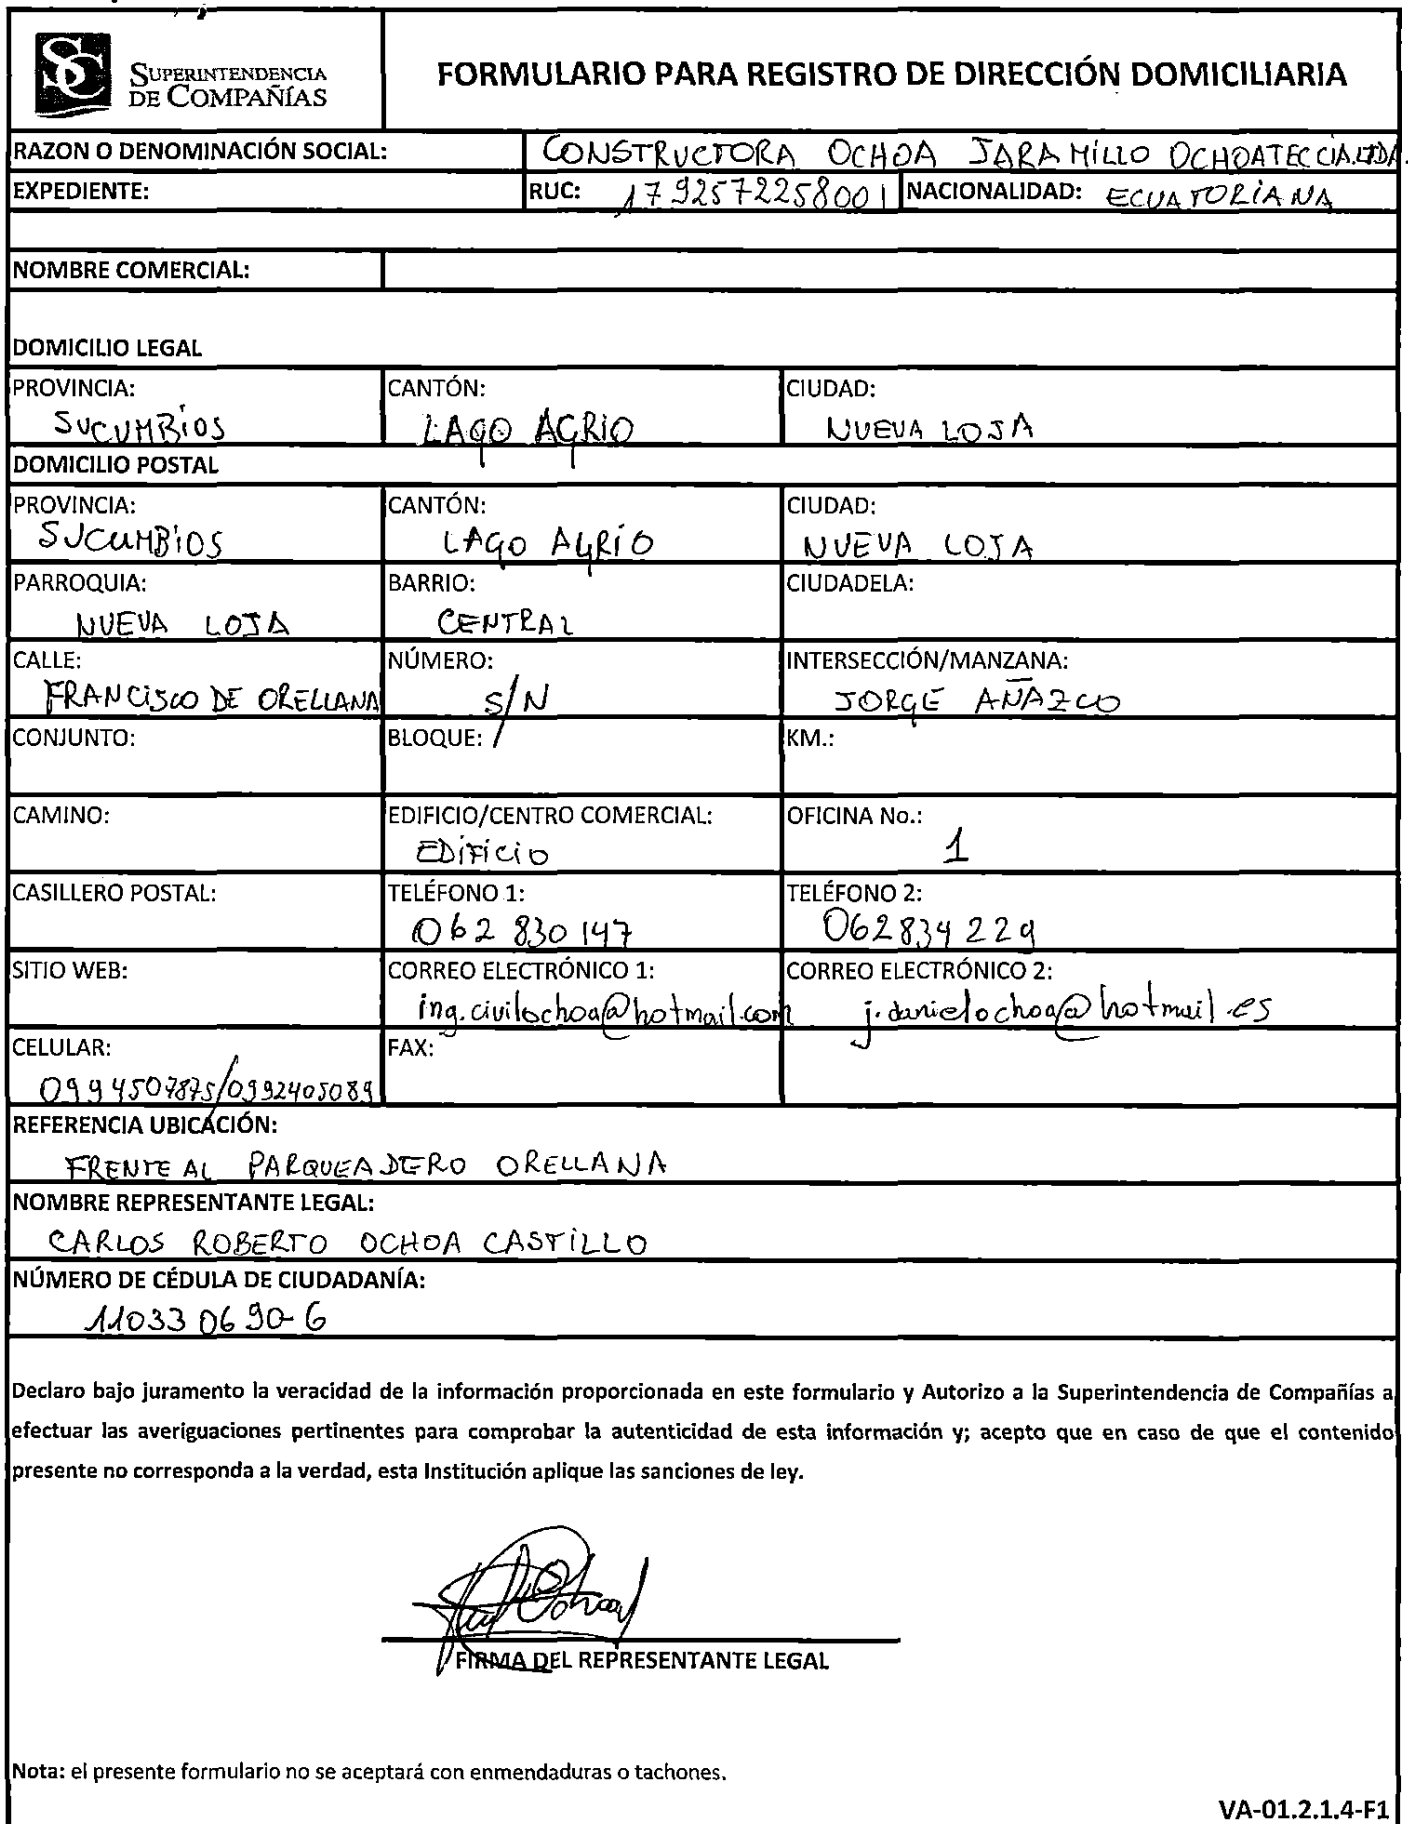 SUPERINTENDENCIA
DE COMPAÑÍAS
FORMULARIO PARA REGISTRO DE DIRECCIÓN DOMICILIARIA
RAZON O DENOMINACIÓN SOCIAL: CONSTRUCTORA OCHOA JARAMILLO OCHOATEC CIA.LTDA.
EXPEDIENTE: RUC: 1792572258001 NACIONALIDAD: ECUATORIANA
NOMBRE COMERCIAL:
DOMICILIO LEGAL
PROVINCIA: CANTÓN: CIUDAD:
SUCUMBIOS LAGO AGRIO NUEVA LOJA
DOMICILIO POSTAL
PROVINCIA: CANTÓN: CIUDAD:
SUCUMBIOS LAGO AGRIO NUEVA LOJA
PARROQUIA: BARRIO: CIUDADELA:
NUEVA LOJA CENTRAL
CALLE: NÚMERO: INTERSECCIÓN/MANZANA:
FRANCISCO DE ORELLANA S/N JORGE AÑAZCO
CONJUNTO: BLOQUE: KM.:
CAMINO: EDIFICIO/CENTRO COMERCIAL: OFICINA No.:
EDIFICIO 1
CASILLERO POSTAL: TELÉFONO 1: TELÉFONO 2:
062 830 147 062834229
SITIO WEB: CORREO ELECTRÓNICO 1: CORREO ELECTRÓNICO 2:
ing.civilochoa@hotmail.com j.danielochoa@hotmail.es
CELULAR: FAX:
0994507875/0992405089
REFERENCIA UBICACIÓN:
FRENTE AL PARQUEADERO ORELLANA
NOMBRE REPRESENTANTE LEGAL:
CARLOS ROBERTO OCHOA CASTILLO
NÚMERO DE CÉDULA DE CIUDADANÍA:
110330690-6
Declaro bajo juramento la veracidad de la información proporcionada en este formulario y Autorizo a la Superintendencia de Compañías a
efectuar las averiguaciones pertinentes para comprobar la autenticidad de esta información y; acepto que en caso de que el contenido
presente no corresponda a la verdad, esta Institución aplique las sanciones de ley.
FIRMA DEL REPRESENTANTE LEGAL
Nota: el presente formulario no se aceptará con enmendaduras o tachones.
VA-01.2.1.4-F1